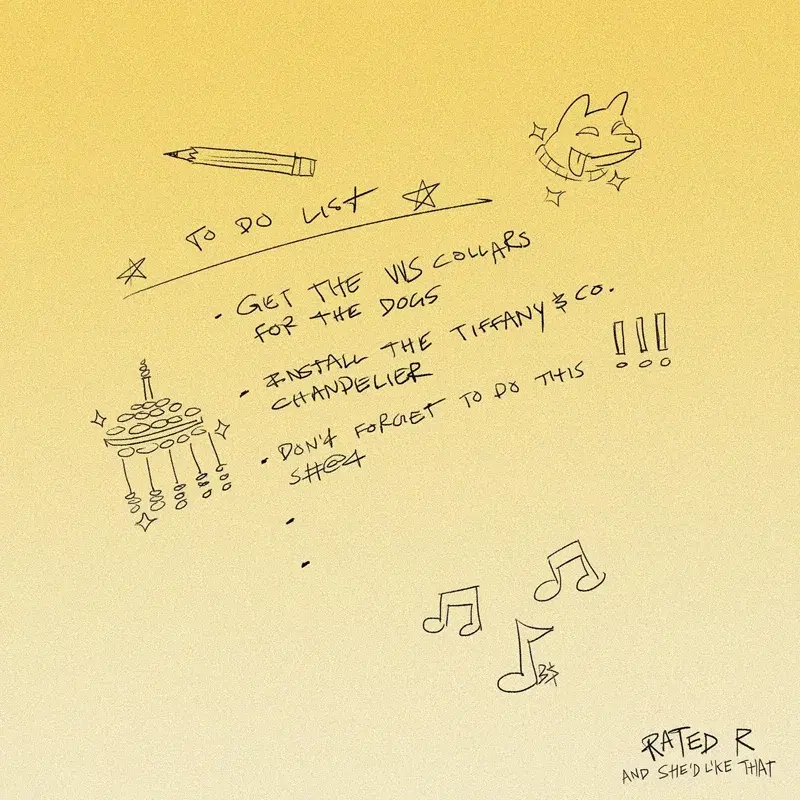 TO DO LIST
• GET THE VVS COLLARS
FOR THE DOGS
• INSTALL THE TIFFANY & CO.
CHANDELIER
• DON'T FORGET TO DO THIS !!!
S#@4
•
•
B$
RATED R
AND SHE'D LIKE THAT